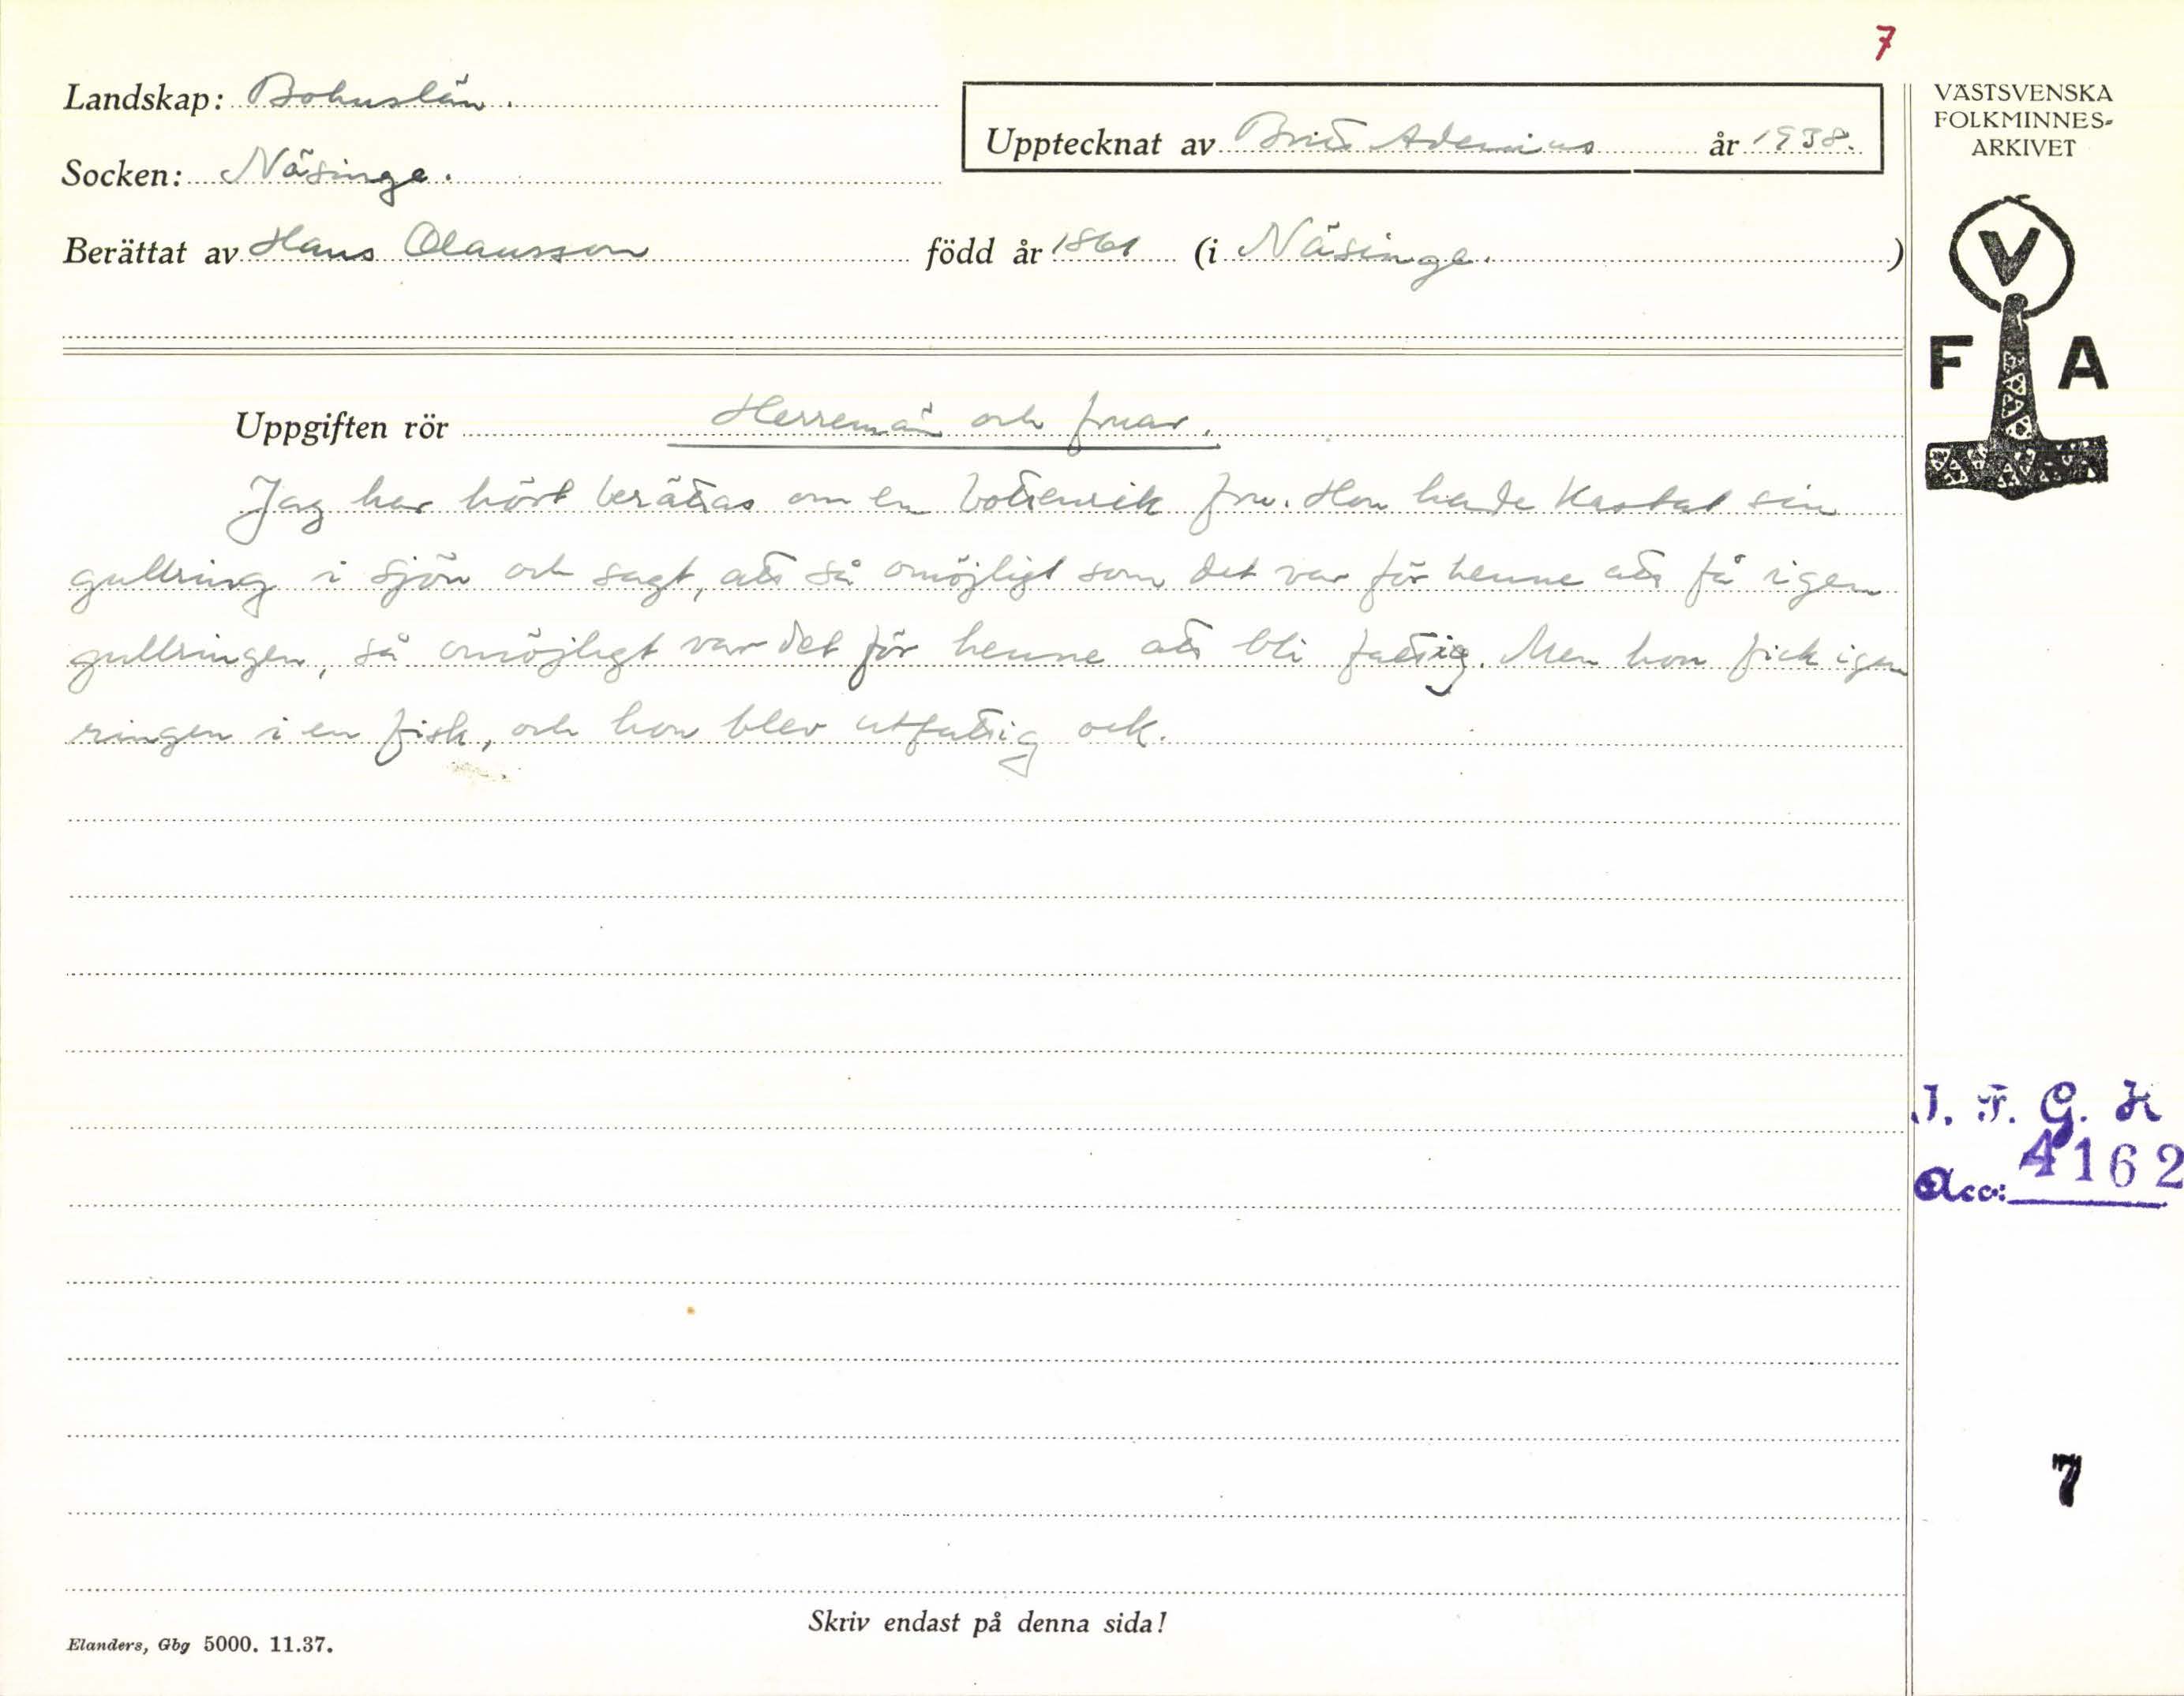 7
Landskap: Bohuslän.
Upptecknat av Britt Ademius år 1938.
Socken: Näsinge.
Berättat av Hans Olausson född år 1861 (i Näsinge.)
VÄSTSVENSKA
FOLKMINNES-
ARKIVET
V
F A
Uppgiften rör Herremän och fruar.
Jag har hört berättas om en bottenrik fru. Hon hade kastat sin
gullring i sjön och sagt, att så omöjligt som det var för henne att få igen
gullringen, så omöjligt var det för henne att bli fattig. Men hon fick igen
ringen i en fisk, och hon blev utfattig ock.
I. F. G. H
Acc: 4162
7
Skriv endast på denna sida!
Elanders, Gbg 5000. 11.37.